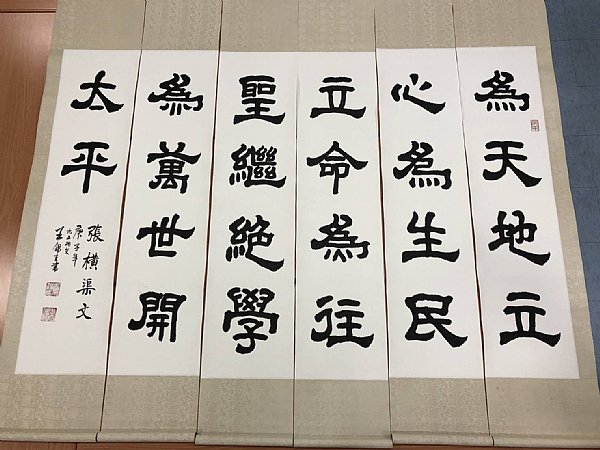 為天地立
心為生民
立命為往
聖繼絕學
為萬世開
太平
張橫渠文
庚子年